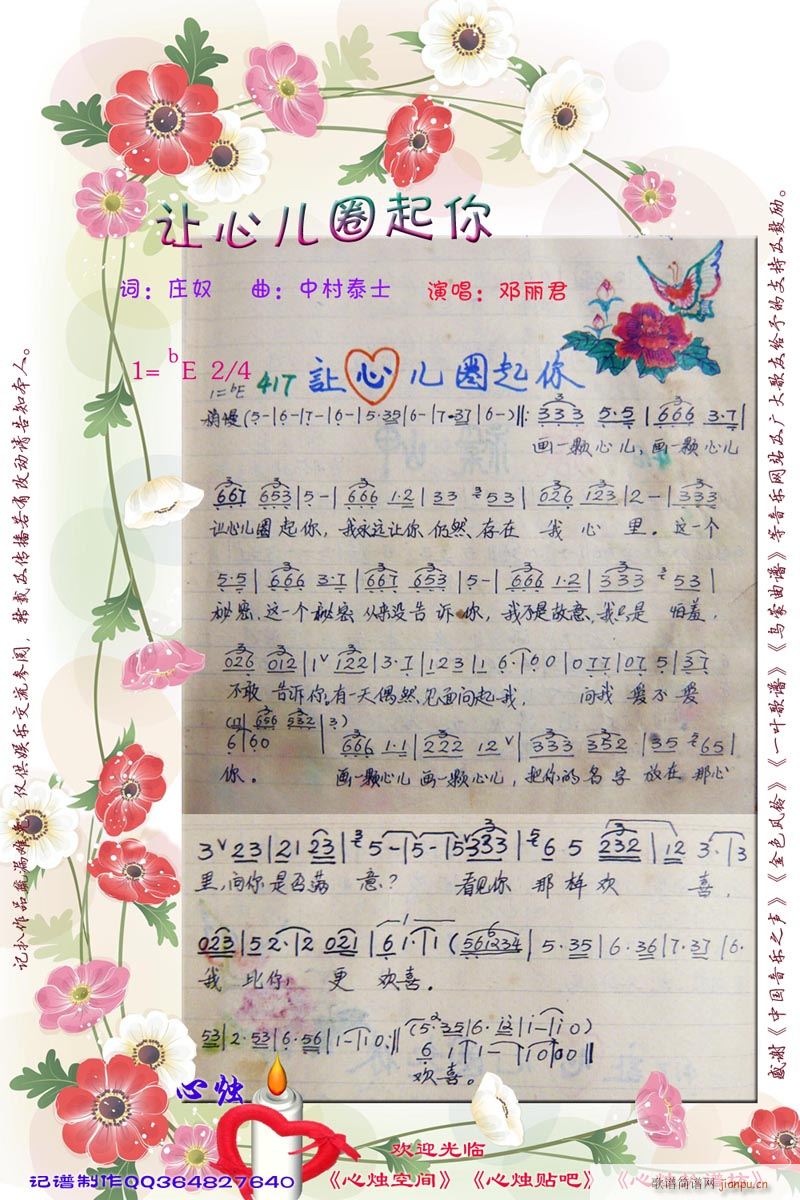 让心儿圈起你
词：庄奴 曲：中村泰士 演唱：邓丽君
1= bE 2/4
1=bE 417 讓心儿圈起你
稍慢(5-|6-|7-|6-|5·35|6-|7·37|6-)‖: 333 5·5|666 3·7|
画一颗心儿，画一颗心儿
667 653|5-|666 1·2|33 353|026 123|2-|333
让心儿圈起你，我永远让你仍然存在我心里。这一个
5·5|666 3·7|667 653|5-|666 1·2|333 353|
秘密，这一个秘密从来没告诉你，我不是故意，我只是怕羞，
026 012|1ˇ122|3·7|123|1 6·|60|077|07 5|37
不敢告诉你。有一天偶然见面问起我，问我爱不爱
656 532|3)
6|60 666 1·1|222 12ˇ|333 352|35 265|
你。画一颗心儿画一颗心儿，把你的名字放在那心
3ˇ23|21 23|35-|5-|5ˇ333|56·5 232|12 3·|3
里，问你是否满意？看见你那样欢喜，
023|52·|2 021|61·|1 (561234|5·35|6·36|7·37|6·
我比你，更欢喜。
53|2·53|6·56|1-|10:‖(5·35|6·|i-|i0)
6 1|1-|10|00‖
欢喜。
心烛
欢迎光临
记谱制作QQ364827640
《心烛空间》《心烛贴吧》
歌谱简谱网
jianpu.cn
感谢《中国音乐之声》《金色风铃》《一叶歌谱》《乌蒙曲谱》等音乐网站及广大歌友给予的支持及鼓励。
记扒作品疏漏难免，仅供娱乐交流参阅，转载及传播若有改动请告知本人。